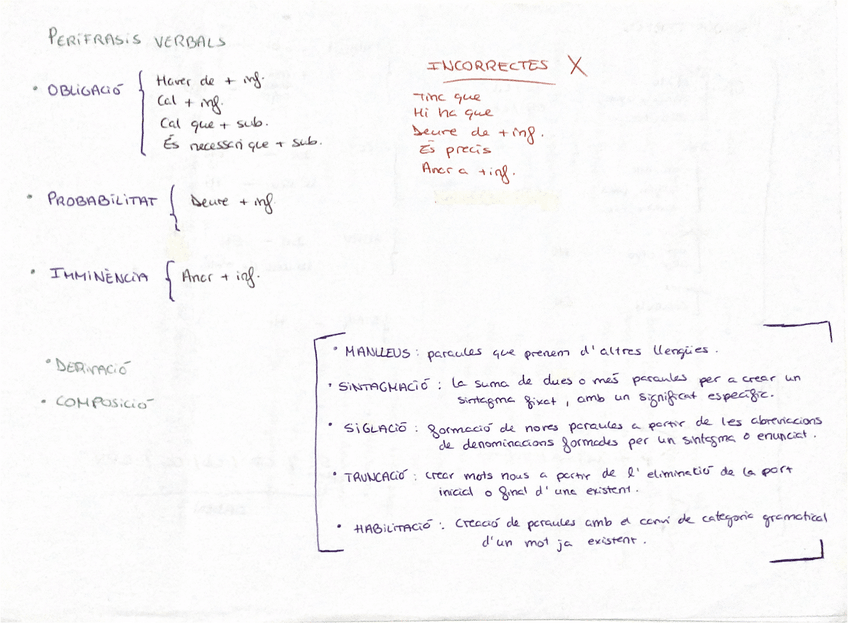 PERÍFRASIS VERBALS
• OBLIGACIÓ
Haver de + inf.
Cal + inf.
Cal que + sub.
És necessari que + sub.
• PROBABILITAT
Deure + inf.
• IMMINÈNCIA
Anar + inf.
INCORRECTES X
Tinc que
Hi ha que
Deure de + inf.
És precís
Anar a + inf.
• DERIVACIÓ
• COMPOSICIÓ
• MANLLEUS : paraules que prenem d'altres llengües.
• SINTAGMACIÓ : la suma de dues o més paraules per a crear un
sintagma fixat, amb un significat específic.
• SIGLACIÓ : formació de noves paraules a partir de les abreviacions
de denominacions formades per un sintagma o enunciat.
• TRUNCACIÓ : crear mots nous a partir de l'eliminació de la part
inicial o final d'una existent.
• HABILITACIÓ : Creació de paraules amb el canvi de categoria gramatical
d'un mot ja existent.